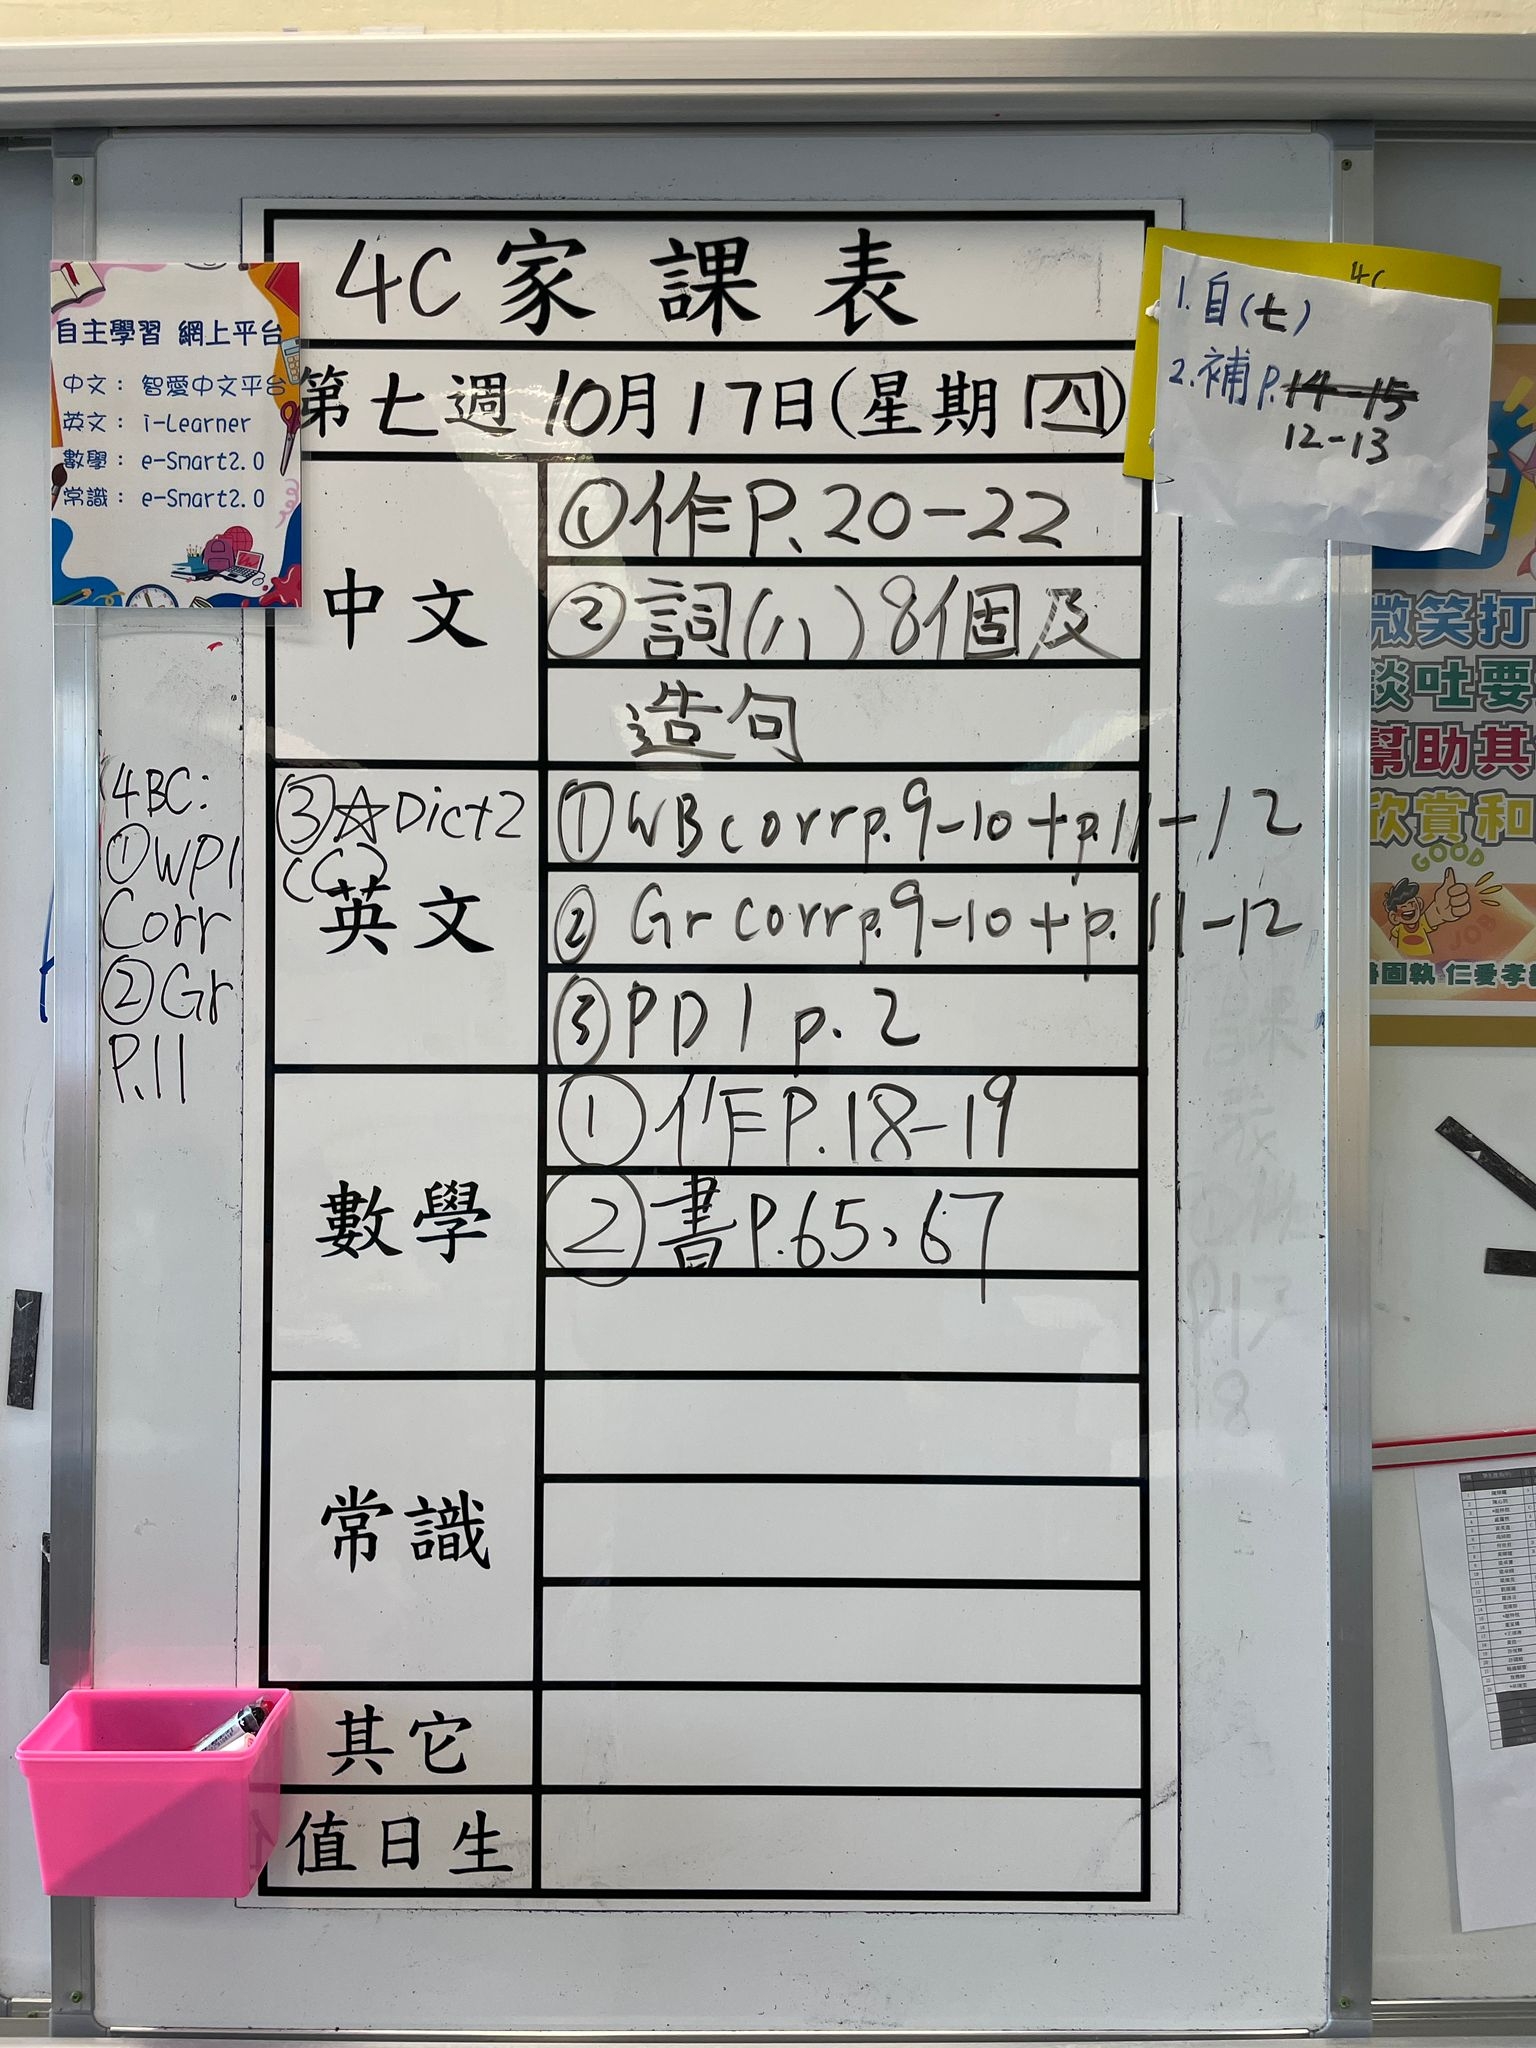 4C 家課表
第七週 10月17日(星期四)
自主學習 網上平台
中文: 智愛中文平台
英文: i-Learner
數學: e-Smart2.0
常識: e-Smart2.0
4C
1. 自(七)
2. 補P. 14-15
12-13
中文
①作P.20-22
②詞(八)8個及
造句
英文
③☆Dict2
(C)
①WB corr p.9-10+p.11-12
②Gr corr p.9-10+p.11-12
③PD1 p.2
4BC:
①WP1
Corr
②Gr
P.11
數學
①作P.18-19
②書P.65、67
常識
其它
值日生
微笑打
談吐要
幫助其
欣賞和
GOOD
JOB
固執 仁愛孝